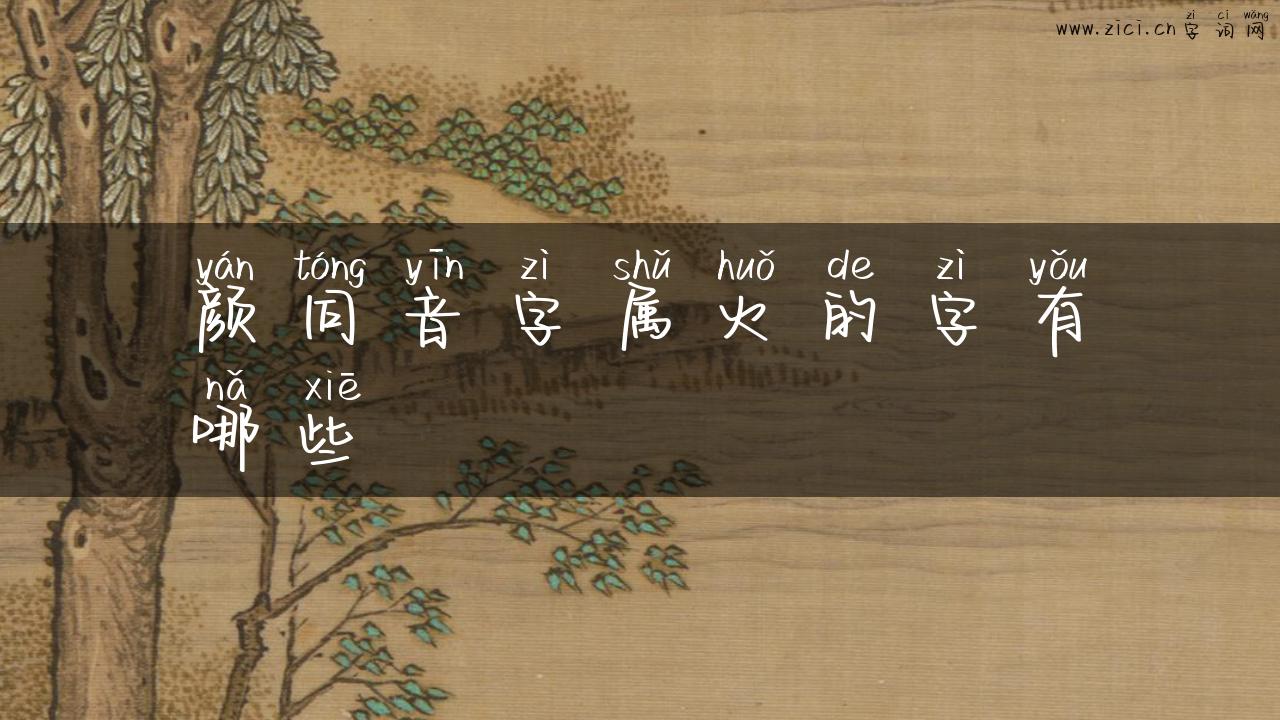 zì cí wǎng
www.zici.cn 字词网
yán tóng yīn zì shǔ huǒ de zì yǒu
颜同音字属火的字有
nǎ xiē
哪些